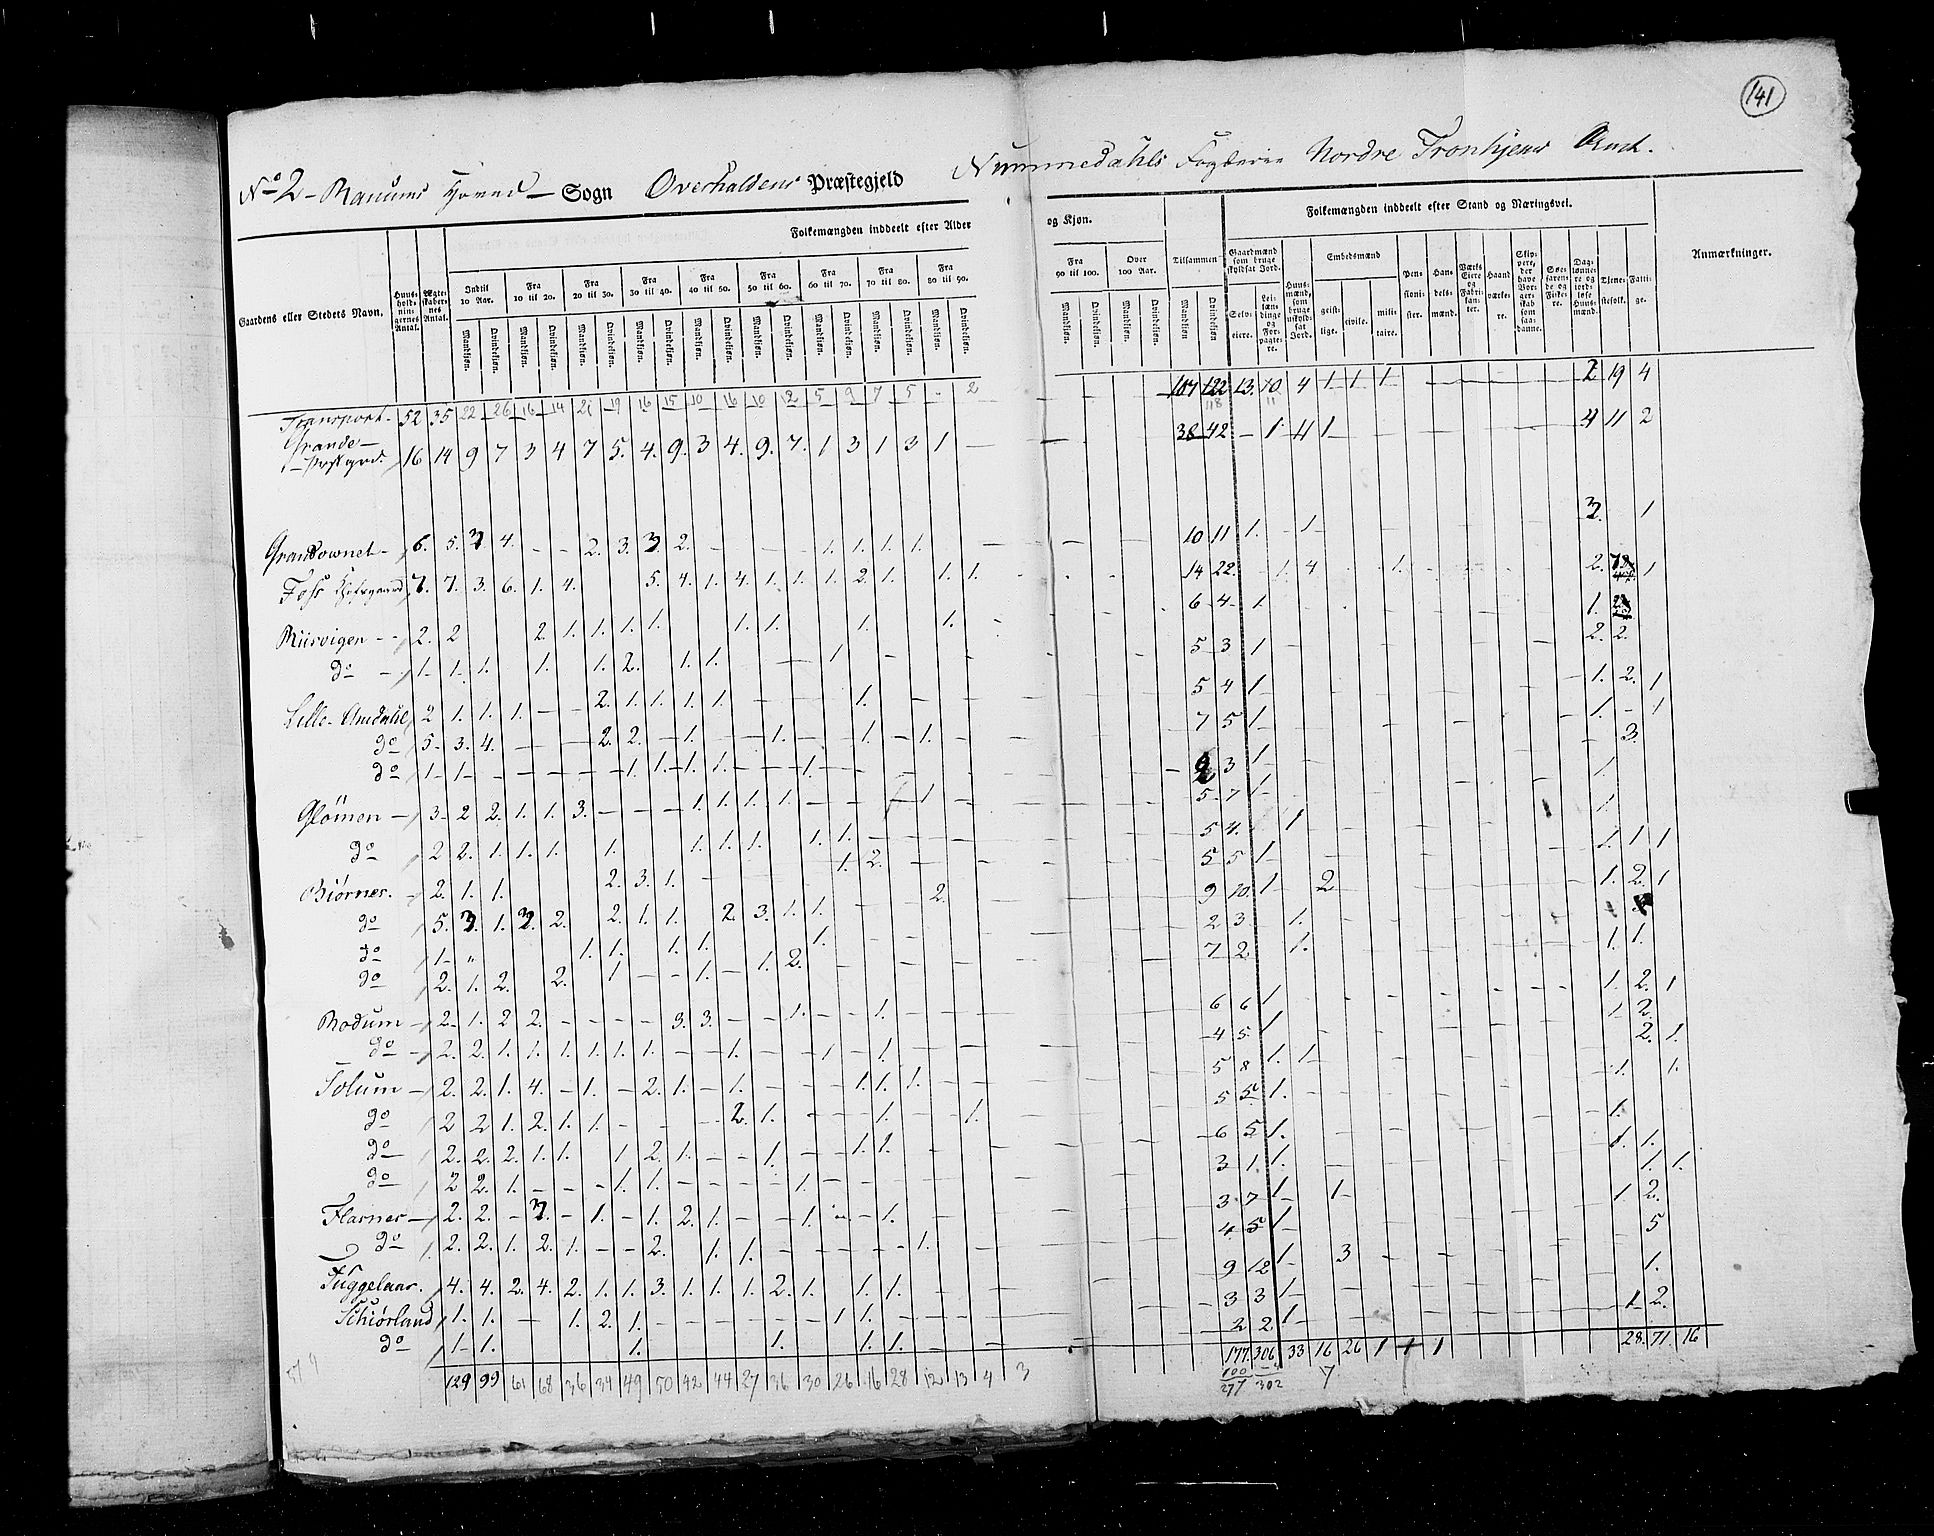 141
No 2 - Ranums Sogn Overhaldens Præstegjeld Nummedahls Fogderie Nordre Tronhjems Amt.
Folkemængden inddeelt efter Alder og Kjøn.
Folkemængden inddeelt efter Stand og Næringsvei.
Gaardens eller Stedets Navn.
Huus-holdnin-gernes Antal.
Ægte-skaber-nes Antal.
Indtil 10 Aar.
Fra 10 til 20.
Fra 20 til 30.
Fra 30 til 40.
Fra 40 til 50.
Fra 50 til 60.
Fra 60 til 70.
Fra 70 til 80.
Fra 80 til 90.
Fra 90 til 100.
Over 100 Aar.
Tilsammen
Mandkiøn. Qvindekiøn.
Gaardmænd som bruge skyldsat Jord.
Selv-eiere.
Lei-læn-dinge og For-pagte-re.
Huus-mænd, som bruge uskyld-sat Jord.
Embedsmænd
geist-lige.
civile.
mili-taire.
Pen-sioni-ster.
Han-dels-mænd.
Værks Eiere og Fabri-kan-ter.
Haand værke-re.
Søe-faren-de og Fiske-re.
Dag-lønne-re og jord-løse Huus-mænd.
Tjene-stefolk.
Fatti-ge.
Anmærkninger.
Transport. 52 35 22 26 16 14 21 19 16 15 10 16 10 12 5 9 7 5 - 2 107 122 13. 10 4 1 1 1 2 19 4
118 11
Grande 16 14 9 7 3 4 7 5. 4. 9. 3 4. 9. 7. 1 3 1 3 1 - 38 42 - 1 11 1 4 11 2
6. 5. 3 4. - - 2. 3. 3. 2. - - - - 1. 1. 1. 1. 10 11 1. 1 2. 1
Foss 7. 7. 3. 6. 1. 4. 5. 4. 1. 4. 1. 1. 1. 2. 1. 1. 1. 14 22. 1. 4 1. 2. 1
2. 2 2. 1. 1. 1. 1. 1. 1. 1. 1. 6 4 1. 1.
do 1. 1. 1. 1. 1. 2. 1. 1. 1 5 3 1 2. 2.
Lille Amdahl 2 1. 1. 1. - - 2. 1. 1. 1. 1. 1. 5 4 1 1. 2. 1
do 5. 3. 4. - - - 2. 2. - 1. - - 1. - - 1. - 1. 7 5 1 1. - 1
do 1 1 - - - - - 1. 1. 1. 1. - - 1. 3 1 3.
Glömen 3 2 2. 1. 1. 3. - - - 1. 1. 1. 1. - - - 1 5 7 1 1.
do 2 2. 1. 1. 1. 1. 1. 1. 1. 1. 1. 5 4. 1 1.
Biørnes. 2. 1. 1. 2. 3. 1. 1. 2. 5 5 1 1. 1 1
do 5. 3. 1. 3. 2. 2. 1. 1. 2. 3. 1. 1. 2. 9 10. 1 2 1. 2. 1
do 1 " 1. 1. 1. 1. 1. 2 3. 1.
do 2. 1. 2. 2. 1 - - 1. - 1. 2. 7 2. 1. 1. 1.
Rodum 2. 1. 2 2. - - - - 3. 3. - - 1. - - 1. 6 6 1 1. 2. 1
do 2. 2. 1. 1. 1. 1. 1. 1. - - 1. - - 1 - 1. 4 5. 1 1 2.
Solum 2. 2. 1. 4. - 1. - 2. 1. - 1. - - - 1. 1. 1. 5 8 1. 1 2. 1.
do 2 2 1. 2. 1. 1. - - - - 2. 1. - - - 1. 1. 5 5. 1. 1. 1.
do 2. 2. 2. 1. 1. 1 2. 1. - - 1. 1 1. 6 5 1. 1.
do 2 2. 1. - - - 1. 1. 1. 3 1. 1. 1. 1.
Flasnes 2. 2. - 3. - 1. - 1. 2. 1. - - 1. - 1. 3 7 1 1 1. 1.
do 2. 2. 1. 2. 1. - - 2. 1. 1. - - - - - 1. 4 5 1 1. 2.
4. 4. 2. 4. 2. 1. 1. 3. 1. 1. 1. 2. 1. 1. 1. 9 12 1 3 5
Schiørland 1. 1. - - 1. 2. 1. - - - - - - 1 1. 3 3 1 1.
do 1 1. 1. 1. 1. 1. 2 2 1 1. 2.
129 99 61 68 36 34 49 50 42 44 27 36 30 26 16 28 12 13 4 3 177 306 33 16 26 1 1 1 28. 71. 16
100
277 302